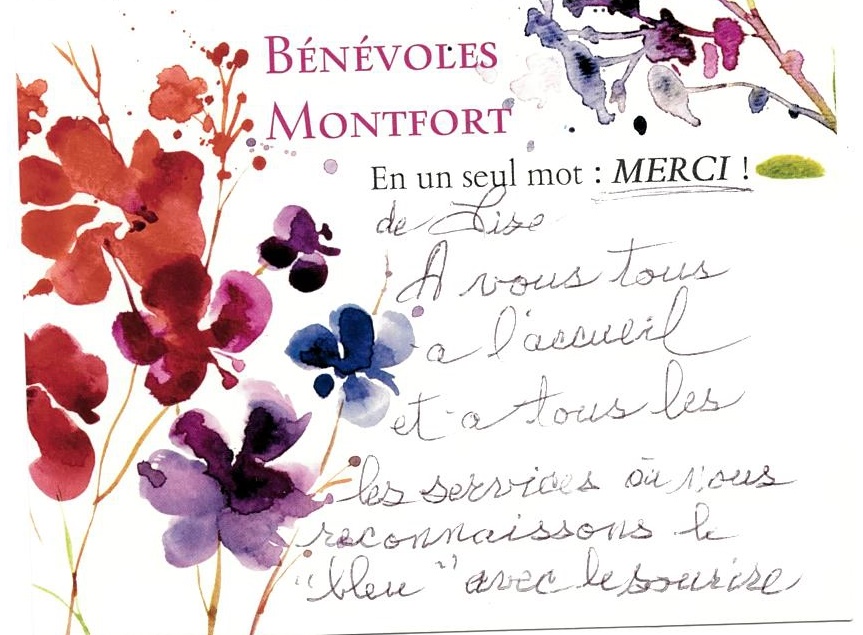 BÉNÉVOLES
MONTFORT
En un seul mot : MERCI !
de Lise
A vous tous
a l'accueil
et a tous les
les services où nous
reconnaissons le
"bleu" avec le sourire